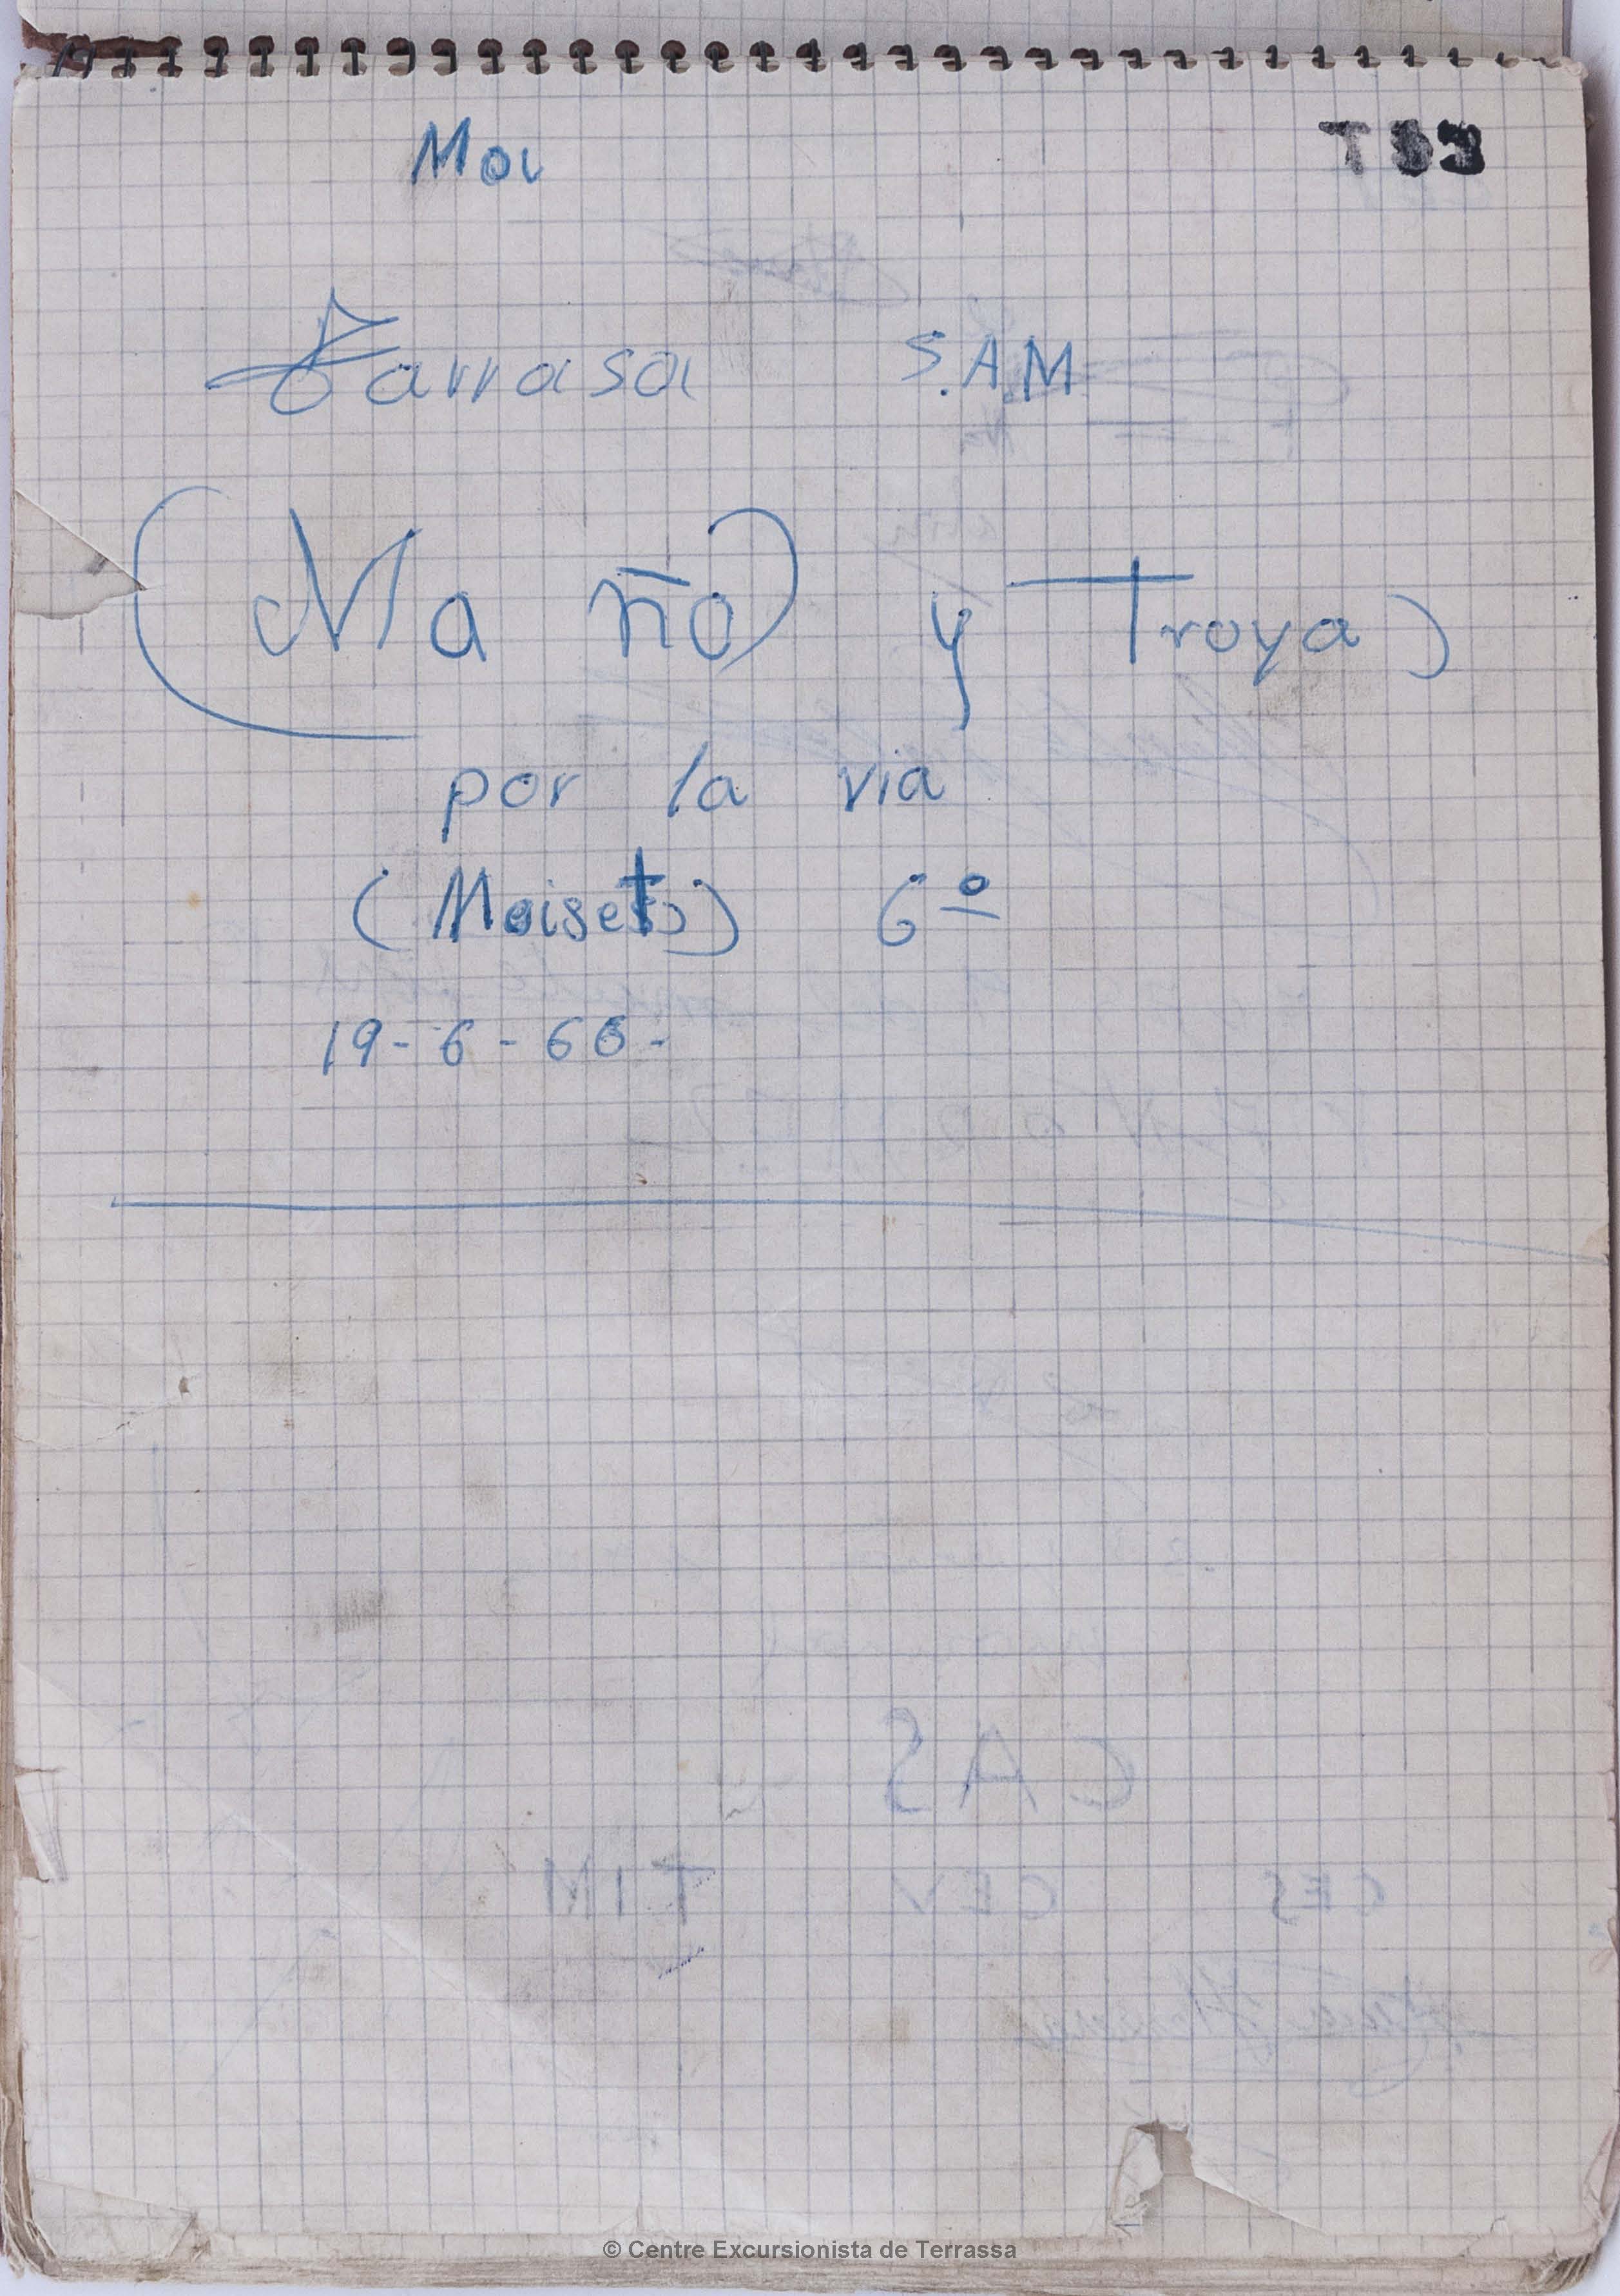 Moi
Tarrasa S.A.M
(Maño y Troya)
por la via
(Moiset) 6º
19-6-66-
CAS
CES CEV TIM
© Centre Excursionista de Terrassa